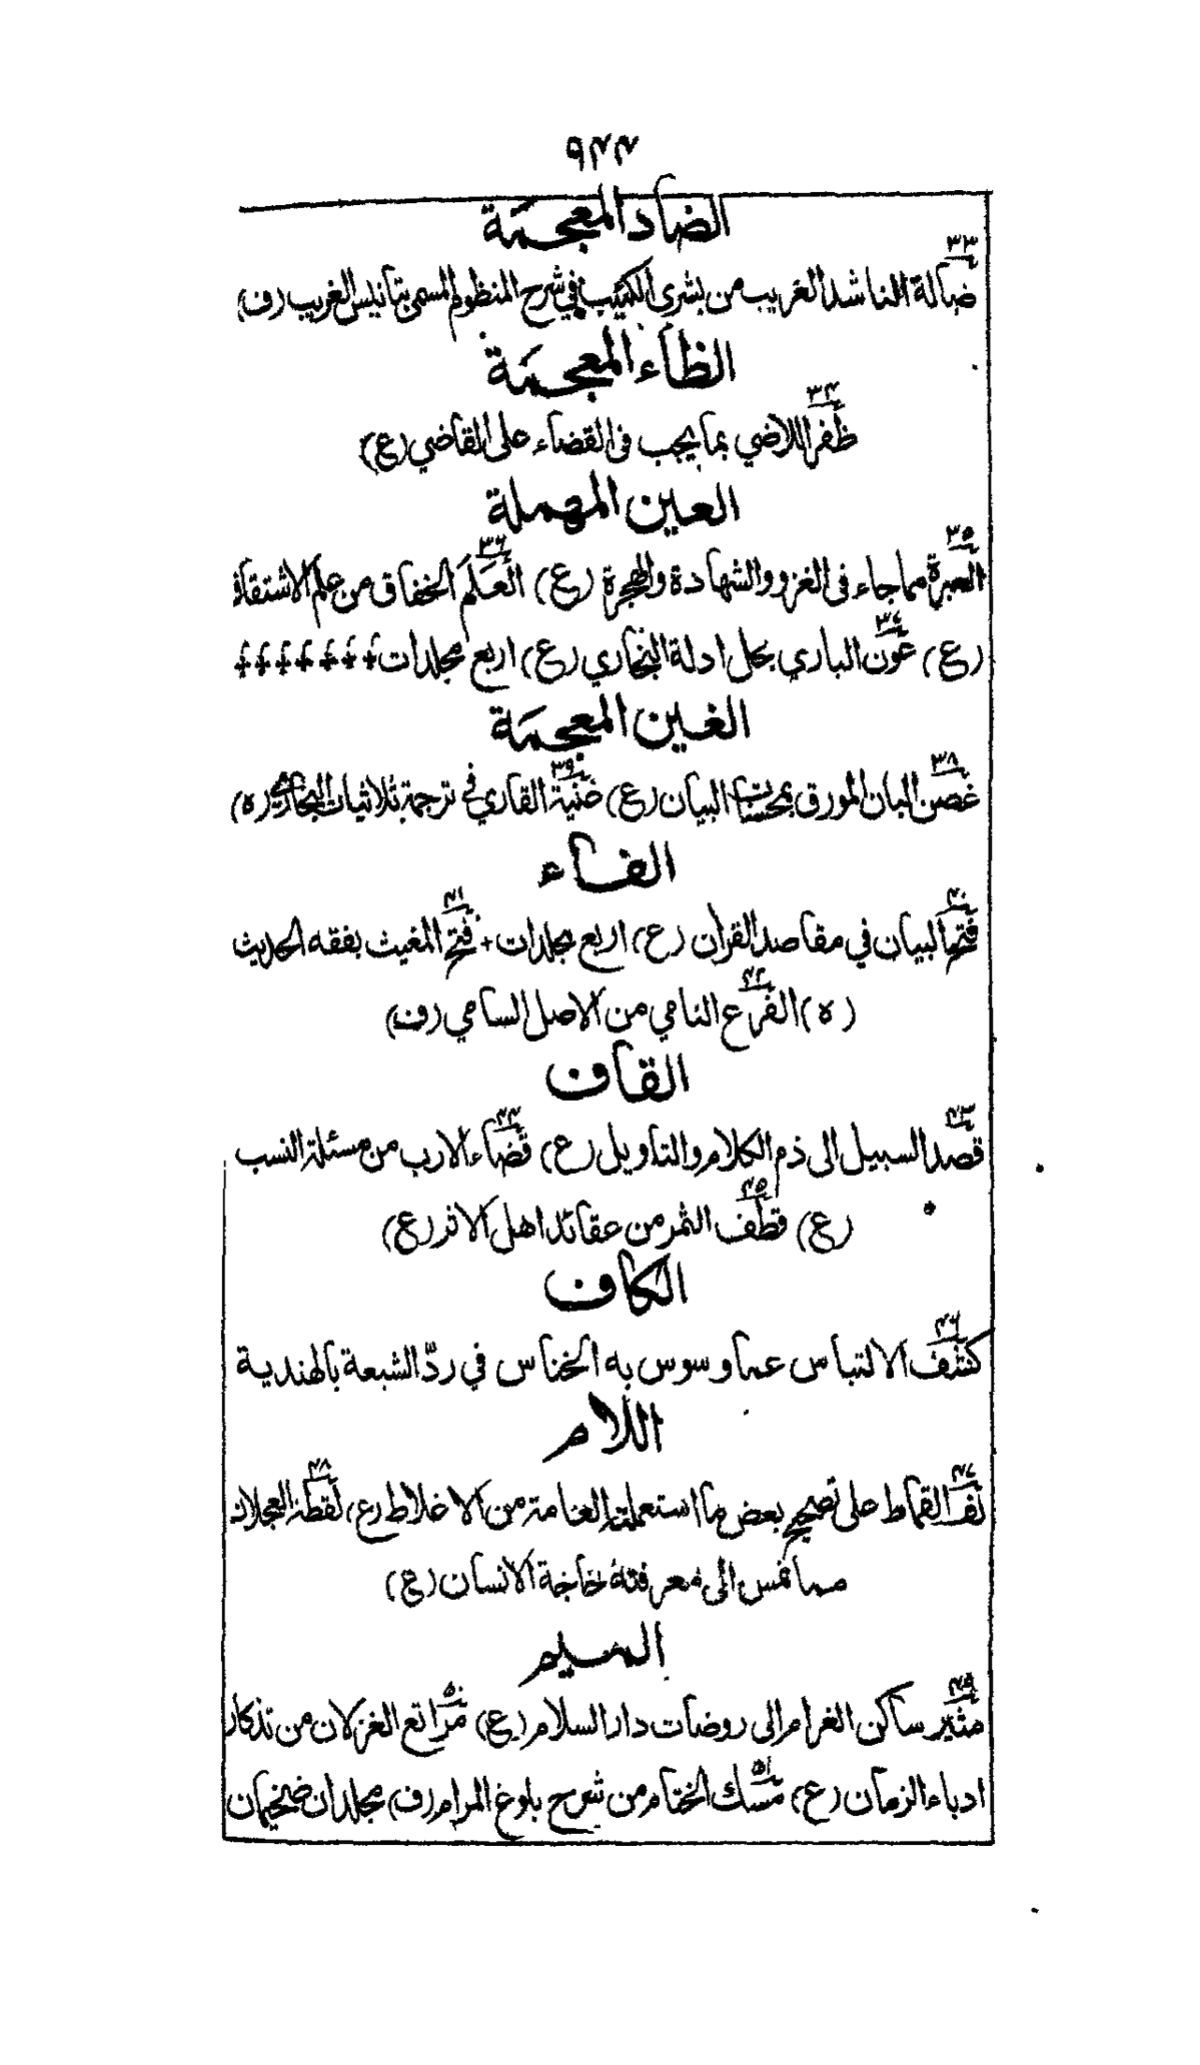 ٩٤٤
الضاد المعجمة
٣٣
ضالة الناشد الغريب من بشرى الكئيب في شرح المنظوم المسمى بتانيس الغريب (ف)
الظاء المعجمة
٣٤
ظفر اللاضي بما يجب فى القضاء على القاضي (ع)
العين المهملة
٣٥ ٣٦
العبرة مما جاء فى الغزو والشهادة والهجرة (ع) العلم الخفاق من علم الاشتقاق
٣٧
(ع) عون الباري بحل ادلة البخاري (ع) اربع مجلدات
الغين المعجمة
٣٨ ٣٩
غصن البان المورق بمحسنات البيان (ع) غنية القاري في ترجمة ثلاثيات البخاري (ه)
الفاء
٤٠ ٤١
فتح البيان في مقاصد القران (ع) اربع مجلدات + فتح المغيث بفقه الحديث
٤٢
(ه) الفرع النامي من الاصل السامي (ف)
القاف
٤٣ ٤٤
قصد السبيل الى ذم الكلام والتاويل (ع) قضاء الارب من مسئلة النسب
٤٥
(ع) قطف الثمر من عقائد اهل الاثر (ع)
الكاف
٤٦
كشف الالتباس عما وسوس به الخناس في ردّ الشيعة بالهندية
اللام
٤٧ ٤٨
لف القماط على تصحيح بعض ما استعملته العامة من الاخلاط (ع) لقطة العجلان
مما تمس الى معرفته حاجة الانسان (ع)
الميم
٤٩ ٥٠
مثير ساكن الغرام الى روضات دار السلام (ع) مراتع الغزلان من تذكار
٥١
ادباء الزمان (ع) مسك الختام من شرح بلوغ المرام (ف) مجلدان ضخيمان